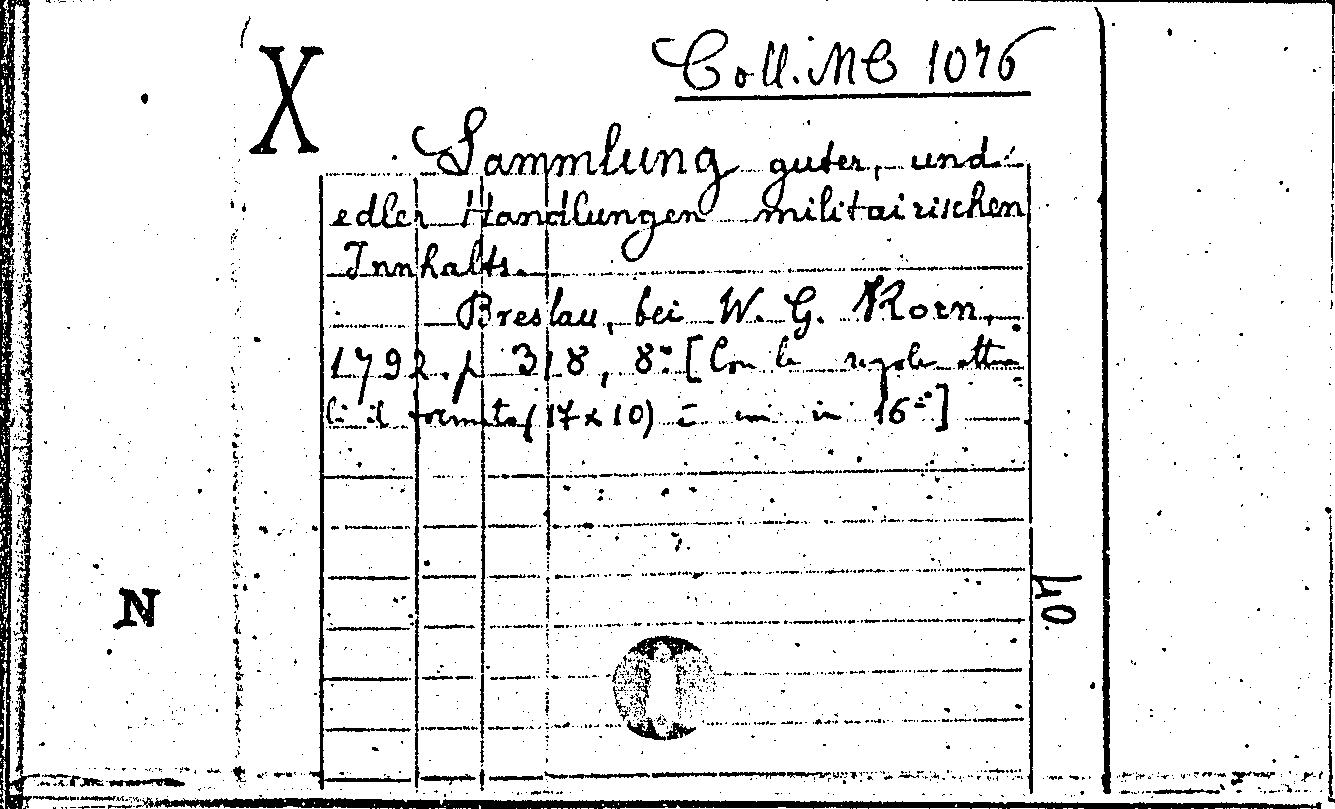 X
Coll. MC 1076
Sammlung guter, und
edler Handlungen militairischen
Innhalts.
Breslau, bei W. G. Korn,
1792. p 318, 8° [Con le regole
il formato (17 x 10) in 16°]
N
40